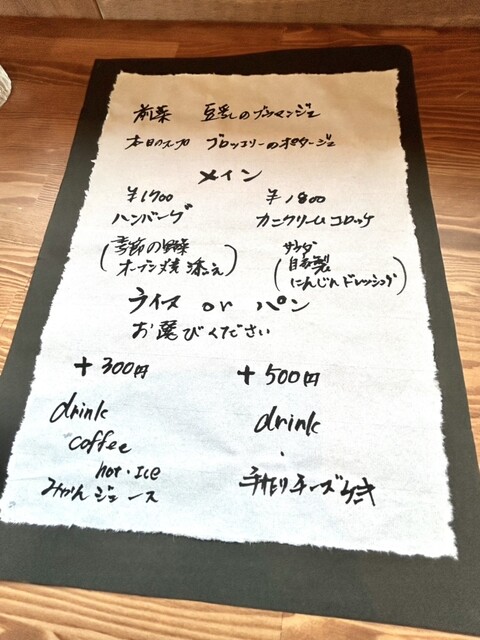 前菜 豆乳のブラマンジェ
本日のスープ ブロッコリーのポタージュ
メイン
¥1700 ¥1800
ハンバーグ カニクリームコロッケ
(季節の野菜 オーブン焼 添え) (サラダ 自家製 にんじんドレッシング)
ライス or パン
お選びください
+300円 +500円
drink drink
coffee ・
hot・Ice 手作りチーズケーキ
みかんジュース